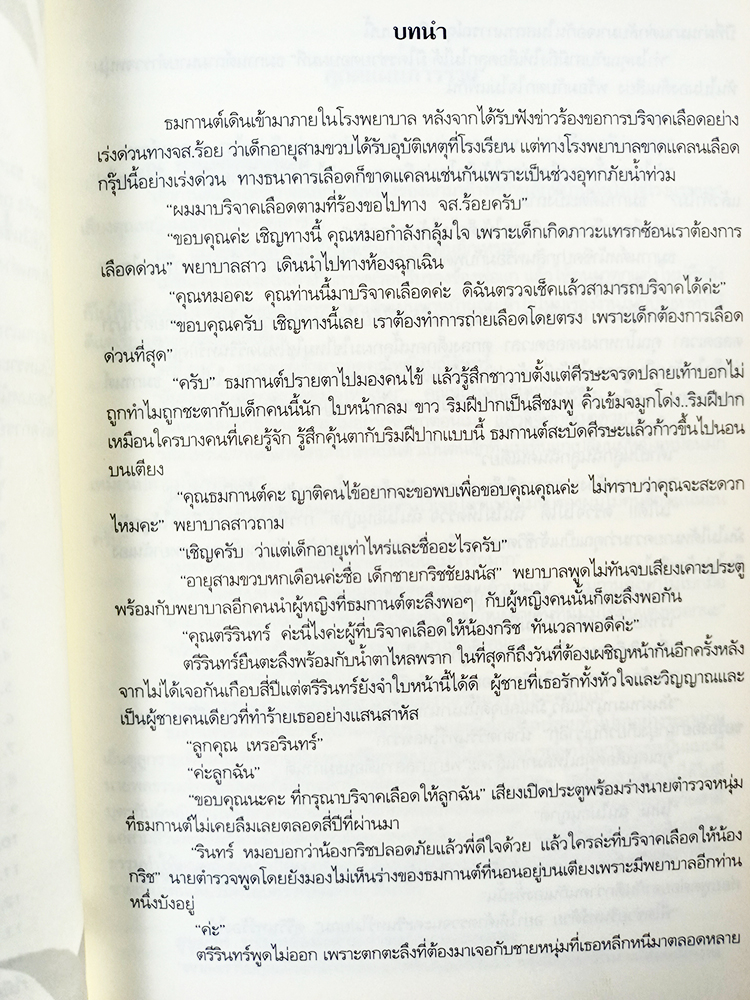 บทนำ
ธมกานต์เดินเข้ามาภายในโรงพยาบาล หลังจากได้รับฟังข่าวร้องขอการบริจาคเลือดอย่าง
เร่งด่วนทางจส.ร้อย ว่าเด็กอายุสามขวบได้รับอุบัติเหตุที่โรงเรียน แต่ทางโรงพยาบาลขาดแคลนเลือด
กรุ๊ปนี้อย่างเร่งด่วน ทางธนาคารเลือดก็ขาดแคลนเช่นกันเพราะเป็นช่วงอุทกภัยน้ำท่วม
“ผมมาบริจาคเลือดตามที่ร้องขอไปทาง จส.ร้อยครับ”
“ขอบคุณค่ะ เชิญทางนี้ คุณหมอกำลังกลุ้มใจ เพราะเด็กเกิดภาวะแทรกซ้อนเราต้องการ
เลือดด่วน” พยาบาลสาว เดินนำไปทางห้องฉุกเฉิน
“คุณหมอคะ คุณท่านนี้มาบริจาคเลือดค่ะ ดิฉันตรวจเช็คแล้วสามารถบริจาคได้ค่ะ”
“ขอบคุณครับ เชิญทางนี้เลย เราต้องทำการถ่ายเลือดโดยตรง เพราะเด็กต้องการเลือด
ด่วนที่สุด”
“ครับ” ธมกานต์ปรายตาไปมองคนไข้ แล้วรู้สึกชาวาบตั้งแต่ศีรษะจรดปลายเท้าบอกไม่
ถูกทำไมถูกชะตากับเด็กคนนี้นัก ใบหน้ากลม ขาว ริมฝีปากเป็นสีชมพู คิ้วเข้มจมูกโด่ง..ริมฝีปาก
เหมือนใครบางคนที่เคยรู้จัก รู้สึกคุ้นตากับริมฝีปากแบบนี้ ธมกานต์สะบัดศีรษะแล้วก้าวขึ้นไปนอน
บนเตียง
“คุณธมกานต์คะ ญาติคนไข้อยากจะขอพบเพื่อขอบคุณคุณค่ะ ไม่ทราบว่าคุณจะสะดวก
ไหมคะ” พยาบาลสาวถาม
“เชิญครับ ว่าแต่เด็กอายุเท่าไหร่และชื่ออะไรครับ”
“อายุสามขวบหกเดือนค่ะชื่อ เด็กชายกริชชัยมนัส” พยาบาลพูดไม่ทันจบเสียงเคาะประตู
พร้อมกับพยาบาลอีกคนนำผู้หญิงที่ธมกานต์ตะลึงพอๆ กับผู้หญิงคนนั้นก็ตะลึงพอกัน
“คุณตรีรินทร์ ค่ะนี่ไงค่ะผู้ที่บริจาคเลือดให้น้องกริช ทันเวลาพอดีค่ะ”
ตรีรินทร์ยืนตะลึงพร้อมกับน้ำตาไหลพราก ในที่สุดก็ถึงวันที่ต้องเผชิญหน้ากันอีกครั้งหลัง
จากไม่ได้เจอกันเกือบสี่ปีแต่ตรีรินทร์ยังจำใบหน้านี้ได้ดี ผู้ชายที่เธอรักทั้งหัวใจและวิญญาณและ
เป็นผู้ชายคนเดียวที่ทำร้ายเธออย่างแสนสาหัส
“ลูกคุณ เหรอรินทร์”
“ค่ะลูกฉัน”
“ขอบคุณนะคะ ที่กรุณาบริจาคเลือดให้ลูกฉัน” เสียงเปิดประตูพร้อมร่างนายตำรวจหนุ่ม
ที่ธมกานต์ไม่เคยลืมเลยตลอดสี่ปีที่ผ่านมา
“รินทร์ หมอบอกว่าน้องกริชปลอดภัยแล้วพี่ดีใจด้วย แล้วใครล่ะที่บริจาคเลือดให้น้อง
กริช” นายตำรวจพูดโดยยังมองไม่เห็นร่างของธมกานต์ที่นอนอยู่บนเตียงเพราะมีพยาบาลอีกท่าน
หนึ่งบังอยู่
“ค่ะ”
ตรีรินทร์พูดไม่ออก เพราะตกตะลึงที่ต้องมาเจอกับชายหนุ่มที่เธอหลีกหนีมาตลอดหลาย